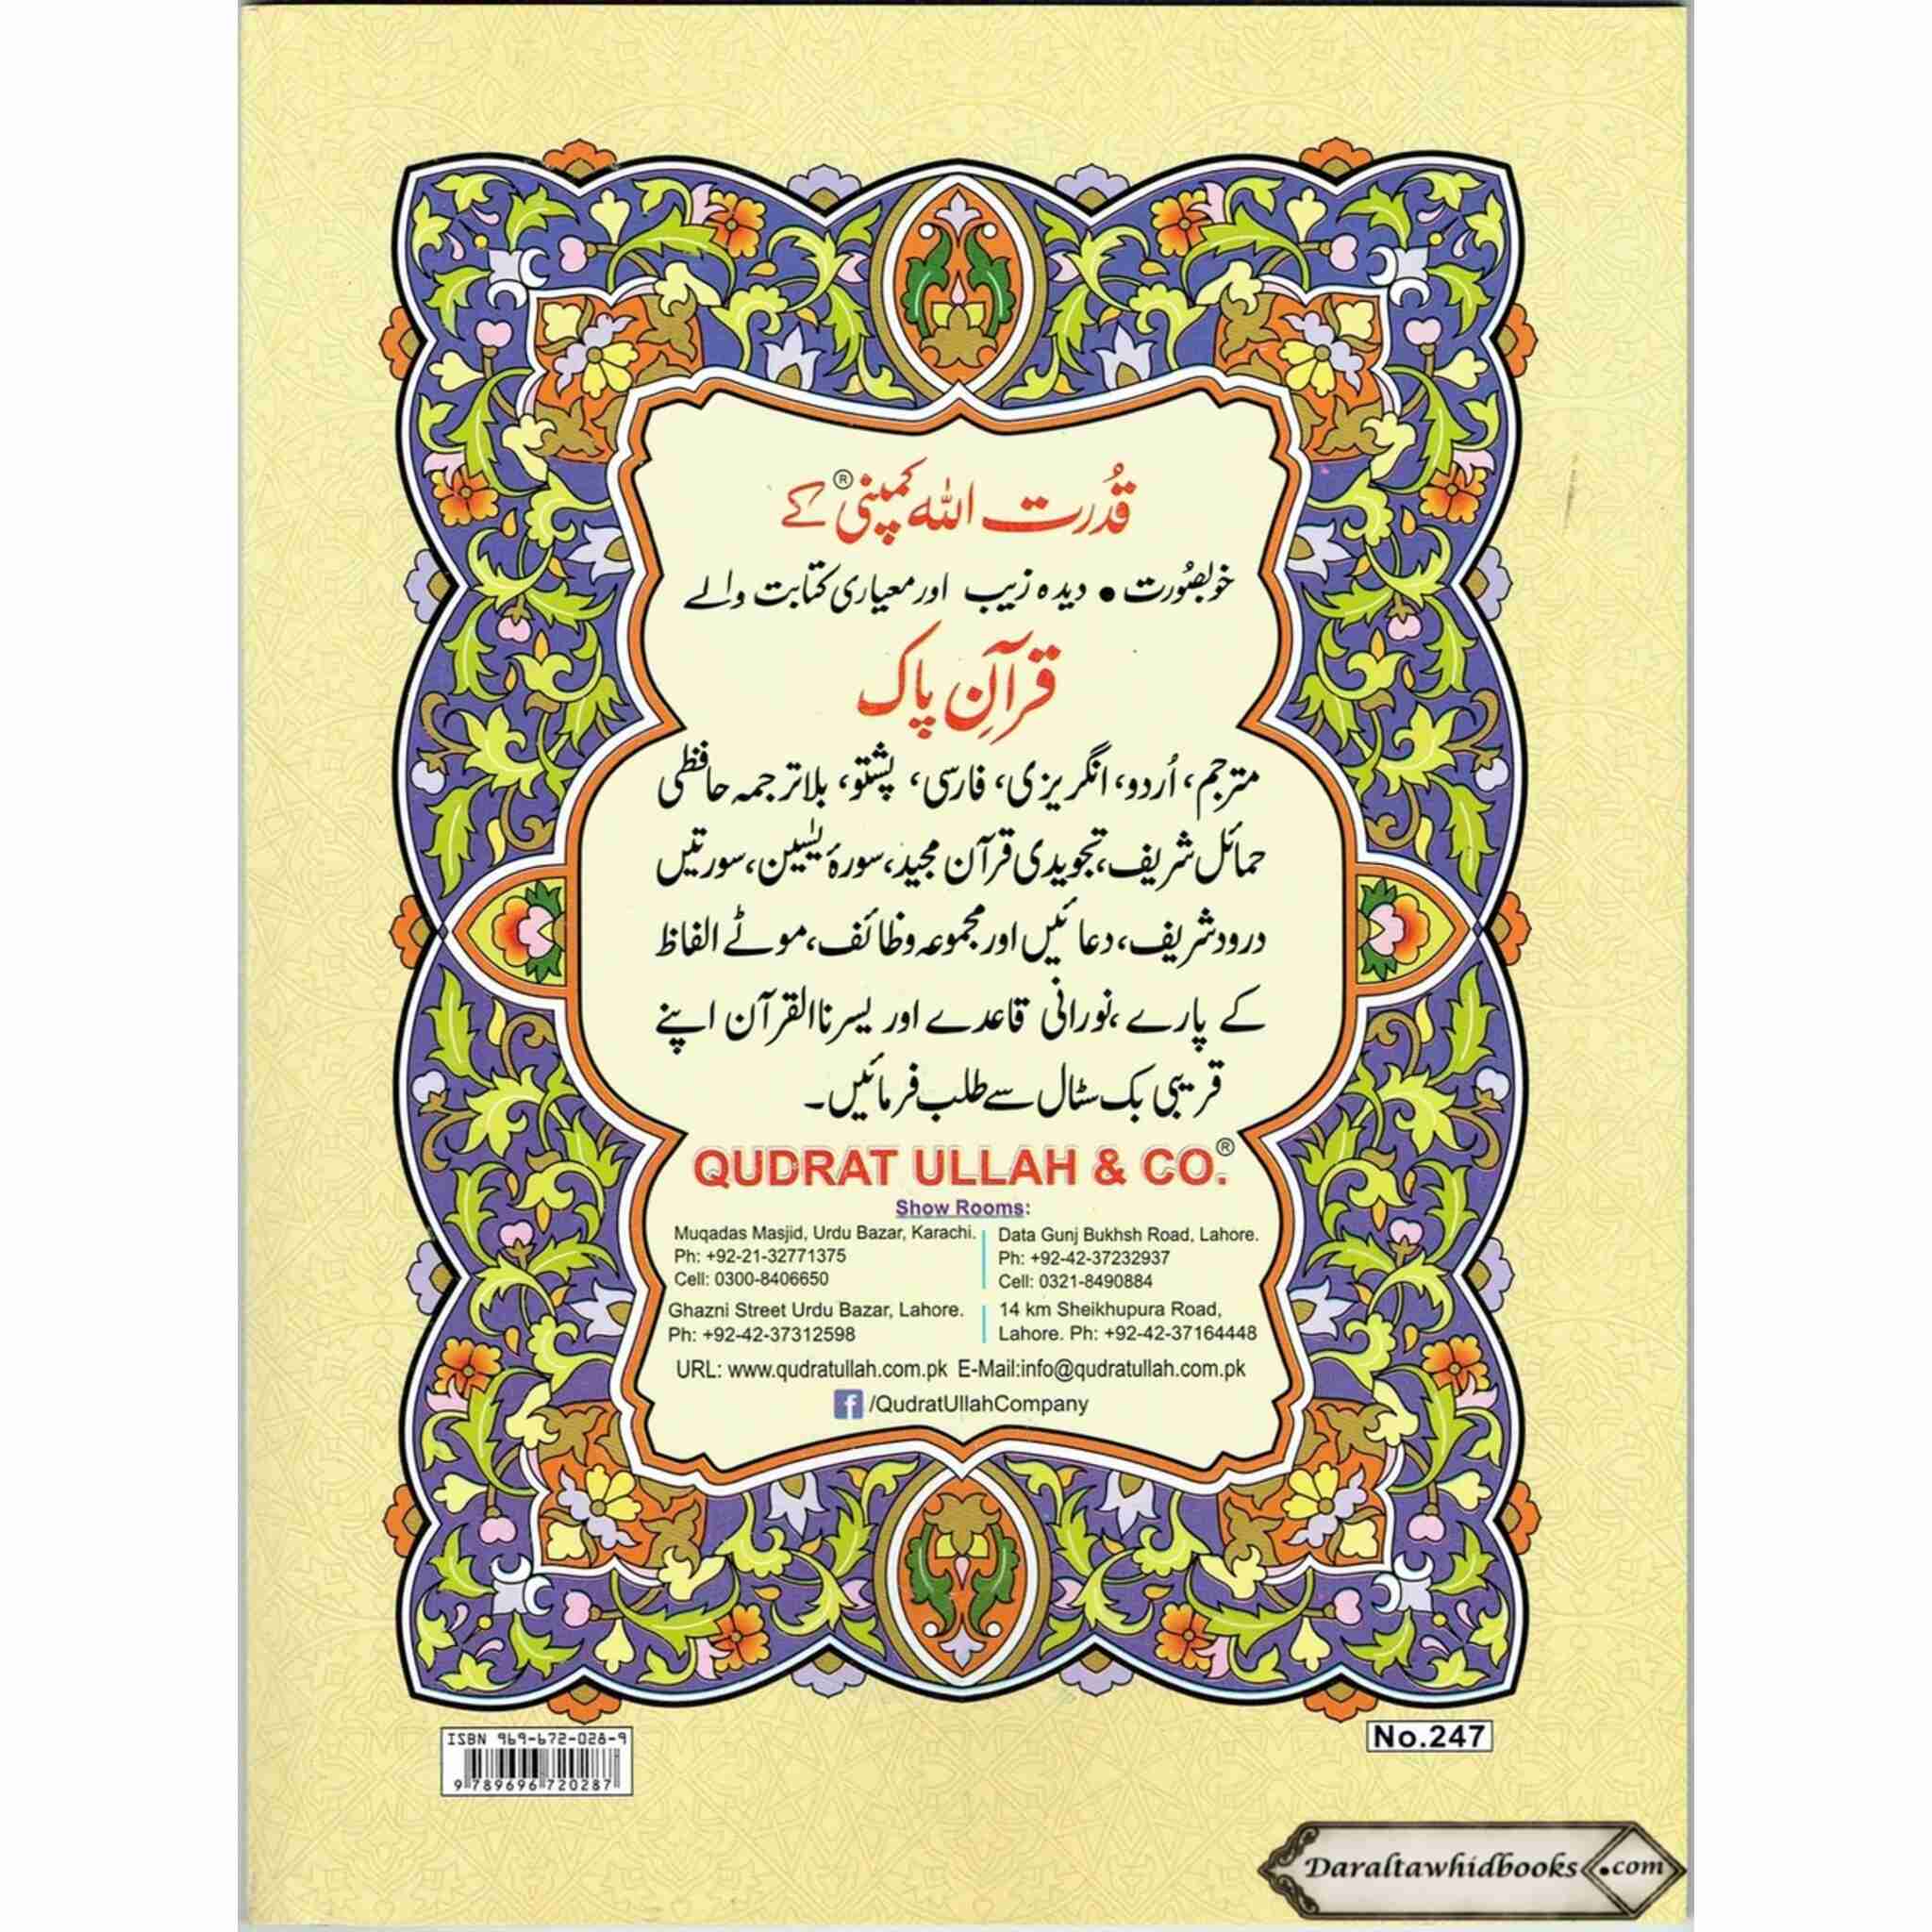 قُدرت اللہ کمپنی® کے
خوبصُورت • دیدہ زیب اور معیاری کتابت والے
قرآنِ پاک
مترجم، اُردو، انگریزی، فارسی، پشتو، بلا ترجمہ حافظی
حمائل شریف، تجویدی قرآن مجید، سورۂ یٰسین، سورتیں
درود شریف، دعائیں اور مجموعہ وظائف، موٹے الفاظ
کے پارے، نورانی قاعدے اور یسرنا القرآن اپنے
قریبی بک سٹال سے طلب فرمائیں۔
QUDRAT ULLAH & CO.®
Show Rooms:
Muqadas Masjid, Urdu Bazar, Karachi.
Ph: +92-21-32771375
Cell: 0300-8406650
Data Gunj Bukhsh Road, Lahore.
Ph: +92-42-37232937
Cell: 0321-8490884
Ghazni Street Urdu Bazar, Lahore.
Ph: +92-42-37312598
14 km Sheikhupura Road,
Lahore. Ph: +92-42-37164448
URL: www.qudratullah.com.pk E-Mail:info@qudratullah.com.pk
f /QudratUllahCompany
ISBN 969-672-028-9
9 789696 720287
No.247
Daraltawhidbooks.com